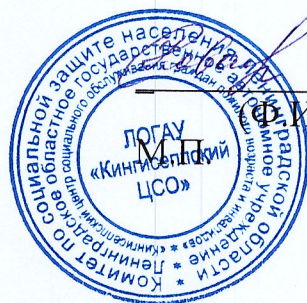 Комитет по социальной защите населения Ленинградской области *
Ленинградское областное государственное автономное учреждение *
«Кингисеппский центр социального обслуживания граждан пожилого возраста и инвалидов» *
ЛОГАУ
«Кингисеппский
ЦСО»
М.П.
(Ф.И